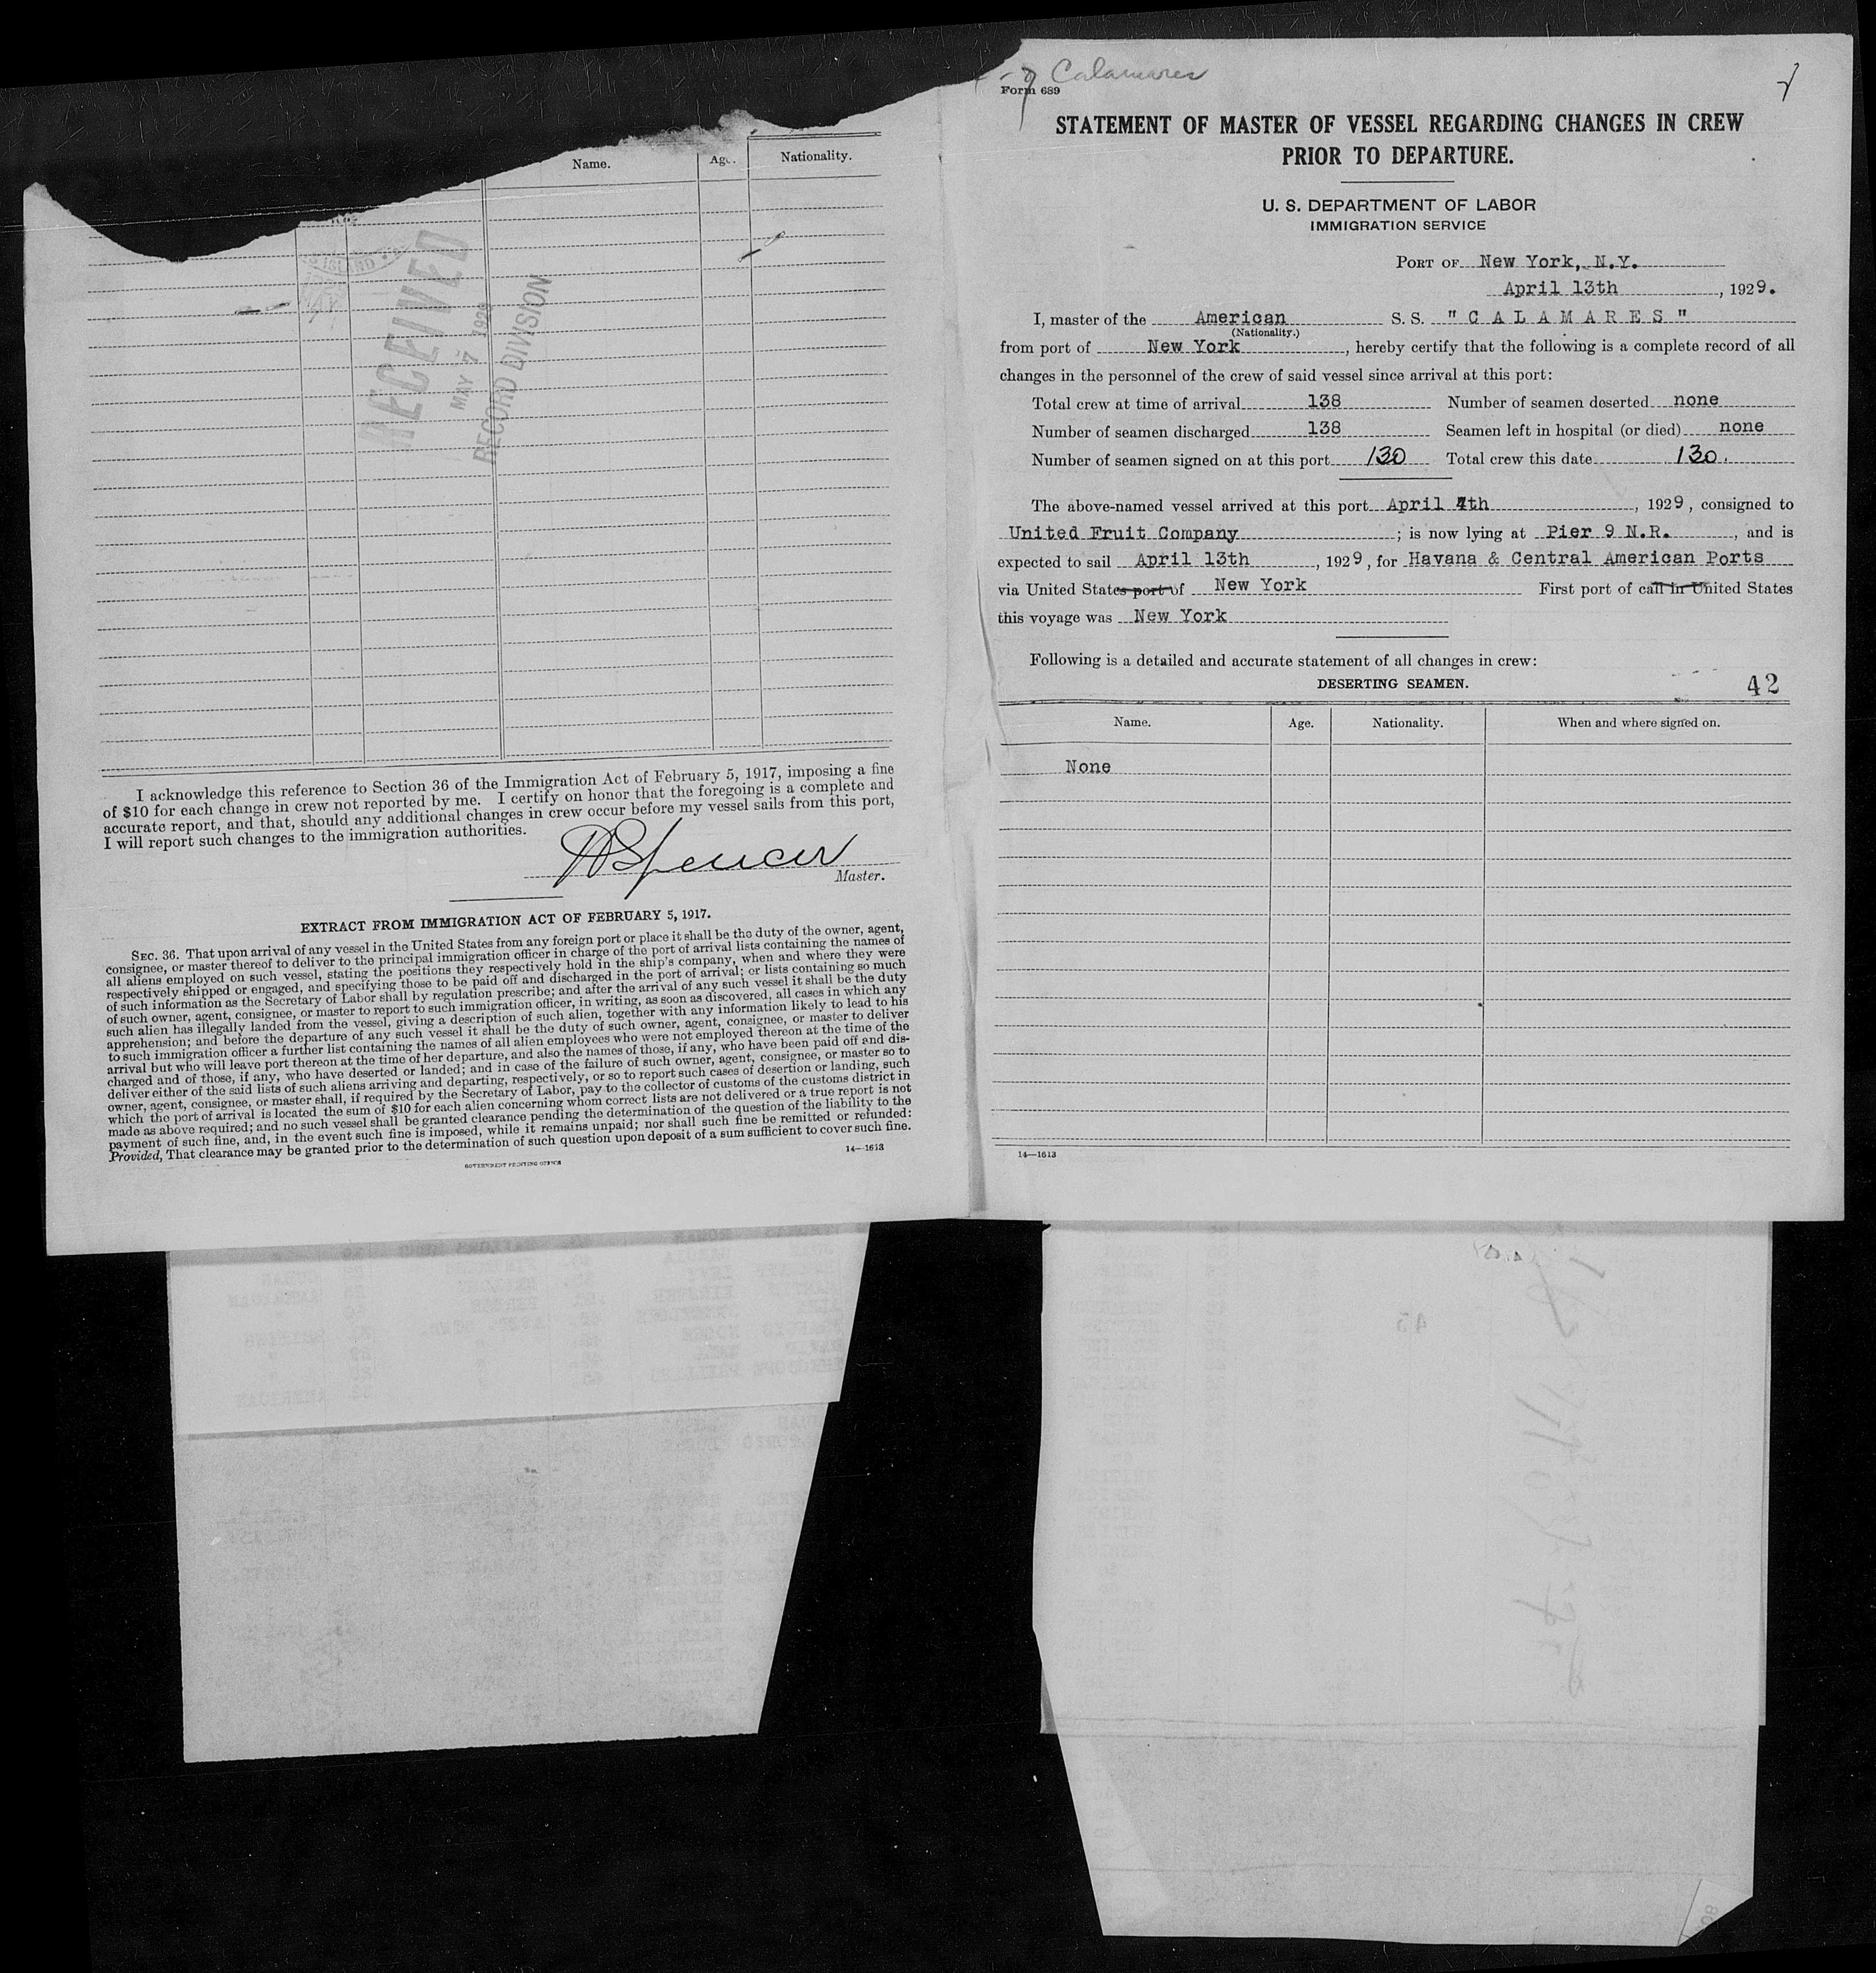 Name. Age. Nationality.
ISLAND
RECEIVED
MAY 7 1929
RECORD DIVISION
I acknowledge this reference to Section 36 of the Immigration Act of February 5, 1917, imposing a fine
of $10 for each change in crew not reported by me. I certify on honor that the foregoing is a complete and
accurate report, and that, should any additional changes in crew occur before my vessel sails from this port,
I will report such changes to the immigration authorities.
Spencer
Master.
EXTRACT FROM IMMIGRATION ACT OF FEBRUARY 5, 1917.
SEC. 36. That upon arrival of any vessel in the United States from any foreign port or place it shall be the duty of the owner, agent,
consignee, or master thereof to deliver to the principal immigration officer in charge of the port of arrival lists containing the names of
all aliens employed on such vessel, stating the positions they respectively hold in the ship's company, when and where they were
respectively shipped or engaged, and specifying those to be paid off and discharged in the port of arrival; or lists containing so much
of such information as the Secretary of Labor shall by regulation prescribe; and after the arrival of any such vessel it shall be the duty
of such owner, agent, consignee, or master to report to such immigration officer, in writing, as soon as discovered, all cases in which any
such alien has illegally landed from the vessel, giving a description of such alien, together with any information likely to lead to his
apprehension; and before the departure of any such vessel it shall be the duty of such owner, agent, consignee, or master to deliver
to such immigration officer a further list containing the names of all alien employees who were not employed thereon at the time of the
arrival but who will leave port thereon at the time of her departure, and also the names of those, if any, who have been paid off and dis-
charged and of those, if any, who have deserted or landed; and in case of the failure of such owner, agent, consignee, or master so to
deliver either of the said lists of such aliens arriving and departing, respectively, or so to report such cases of desertion or landing, such
owner, agent, consignee, or master shall, if required by the Secretary of Labor, pay to the collector of customs of the customs district in
which the port of arrival is located the sum of $10 for each alien concerning whom correct lists are not delivered or a true report is not
made as above required; and no such vessel shall be granted clearance pending the determination of the question of the liability to the
payment of such fine, and, in the event such fine is imposed, while it remains unpaid; nor shall such fine be remitted or refunded:
Provided, That clearance may be granted prior to the determination of such question upon deposit of a sum sufficient to cover such fine.
14—1613
GOVERNMENT PRINTING OFFICE
Calamares
Form 689
STATEMENT OF MASTER OF VESSEL REGARDING CHANGES IN CREW
PRIOR TO DEPARTURE.
U. S. DEPARTMENT OF LABOR
IMMIGRATION SERVICE
PORT OF New York, N.Y.
April 13th, 1929.
I, master of the American S. S. "C A L A M A R E S"
(Nationality.)
from port of New York, hereby certify that the following is a complete record of all
changes in the personnel of the crew of said vessel since arrival at this port:
Total crew at time of arrival 138 Number of seamen deserted none
Number of seamen discharged 138 Seamen left in hospital (or died) none
Number of seamen signed on at this port 130 Total crew this date 130.
The above-named vessel arrived at this port April 4th, 1929, consigned to
United Fruit Company; is now lying at Pier 9 N.R., and is
expected to sail April 13th, 1929, for Havana & Central American Ports
via United States port of New York First port of call in United States
this voyage was New York
Following is a detailed and accurate statement of all changes in crew:
DESERTING SEAMEN. 42
Name. Age. Nationality. When and where signed on.
None
14—1613